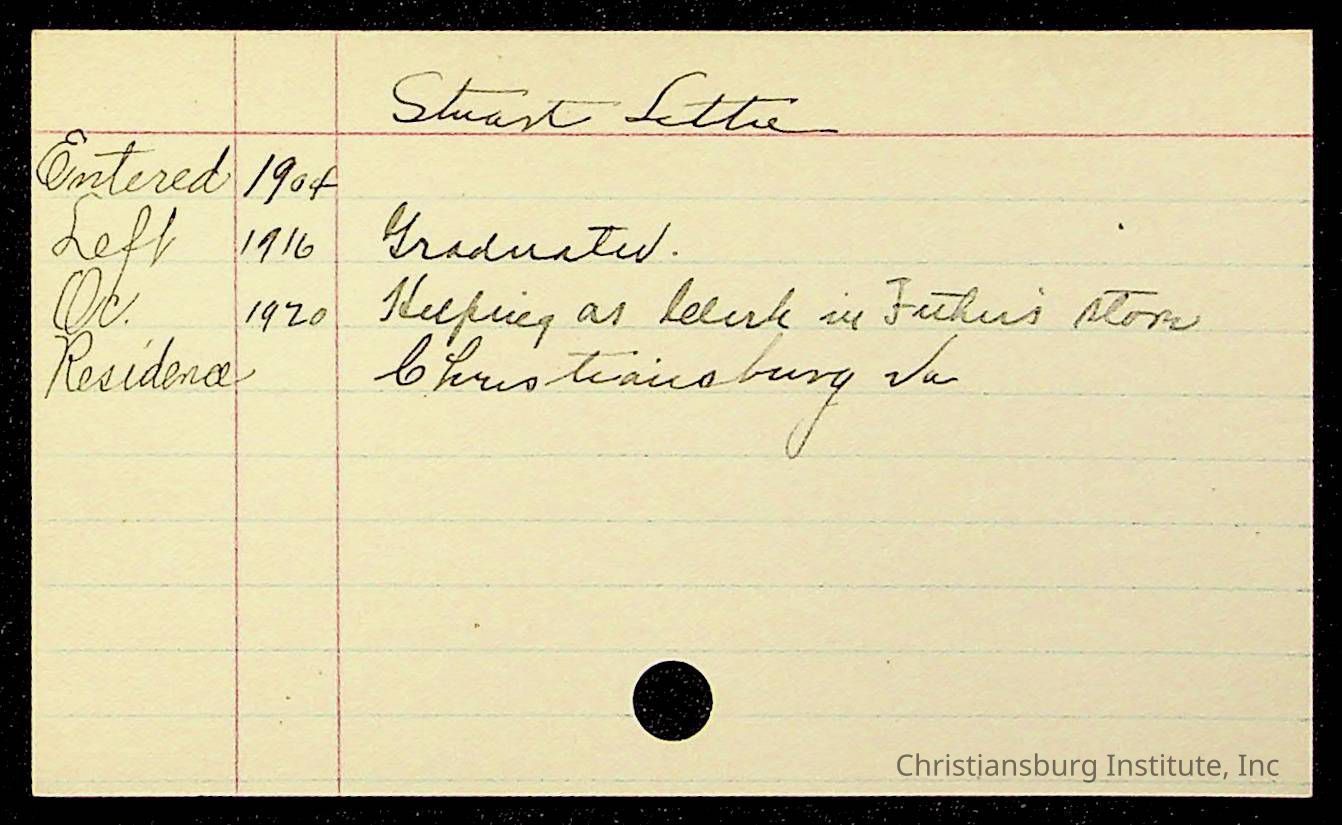 Stuart Lettie
Entered 1904
Left 1916 Graduated.
Oc. 1920 Helping as Clerk in Father's store
Residence Christiansburg Va
Christiansburg Institute, Inc